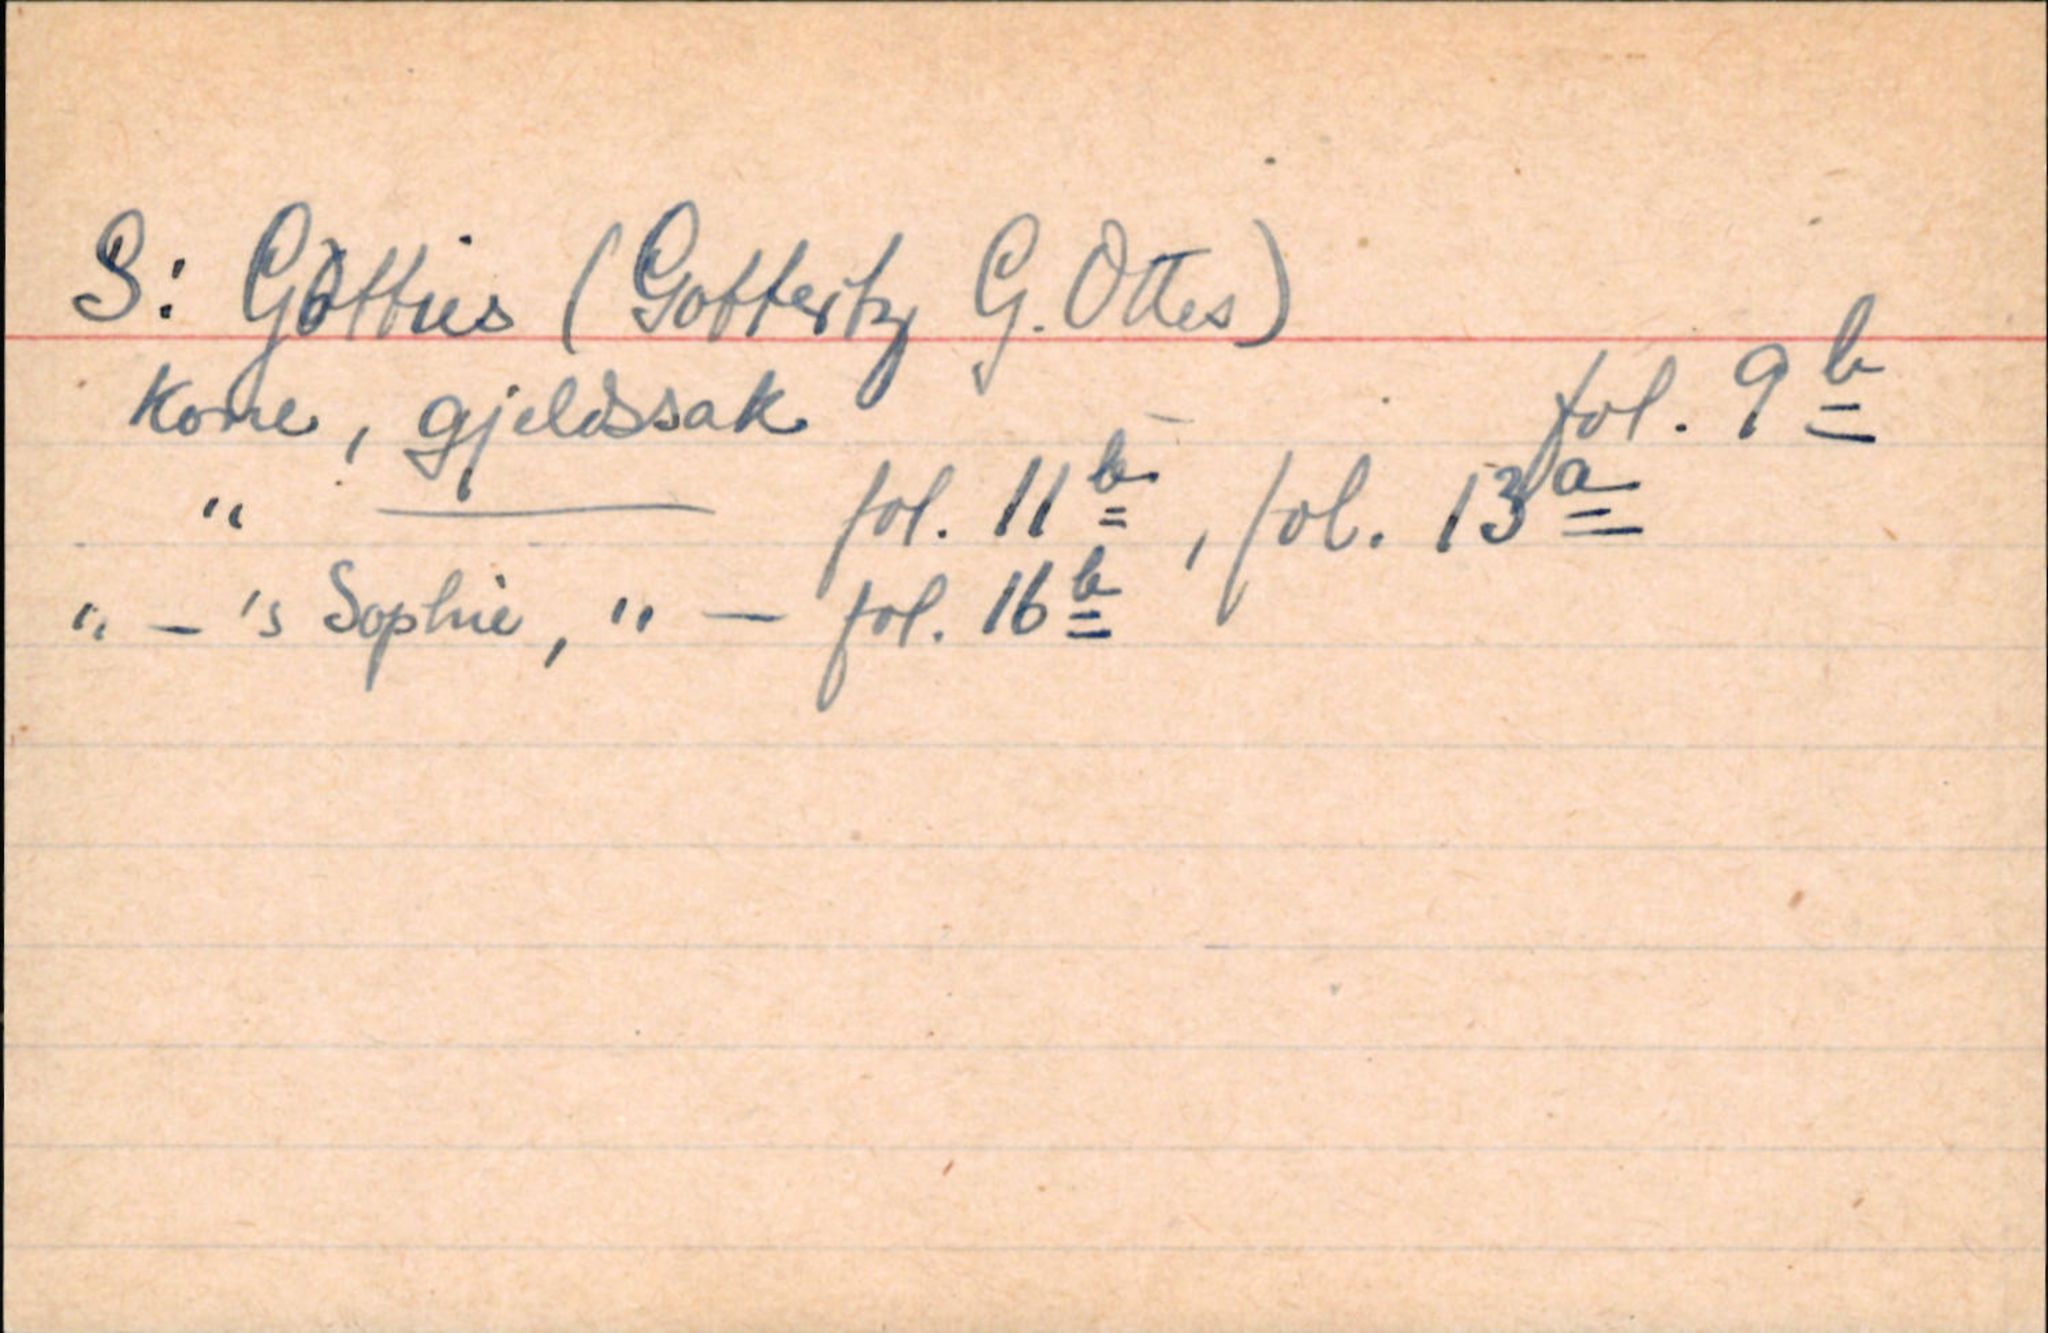 S: Gotties (Gottertz G. Ottes)
Kone, gjeldssak fol. 9 b
" — fol. 11 b, fol. 13 a
" — 's Sophie, " — fol. 16 b